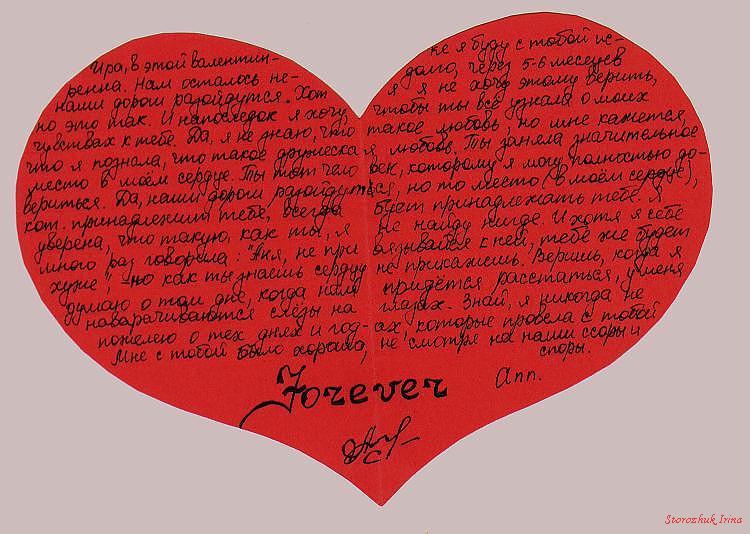 Ира, в этой валентин- ке я буду с тобой ис-
ренна. Нам осталось не- долго, через 5-6 месяцев
наши дороги разойдутся. Хот я я не хочу этому верить,
но это так. И напоследок я хочу, чтобы ты всё узнала о моих
чувствах к тебе. Да, я не знаю, что такое любовь, но мне кажется,
что я познала, что такое дружеска я любовь. Ты заняла значительное
место в моём сердце. Ты тот чело век, которому я могу полностью до-
вериться. Да, наши дороги разойдутся, но то место (в моём сердце),
кот. принадлежит тебе, всегда будет принадлежать тебе. Я
уверена, что такую, как ты, я не найду нигде. И хотя я себе
много раз говорила: "Аня, не при вязывайся к ней, тебе же будет
хуже", - но как ты знаешь сердцу не прикажешь. Веришь, когда я
думаю о том дне, когда нам придётся расстаться, у меня
наварачиваются слёзы на глазах. Знай, я никогда не
пожелею о тех днях и год- ах, которые провела с тобой
Мне с тобой было хорошо, не смотря на наши ссоры и
споры.
Forever Ann.
Storozhuk Irina